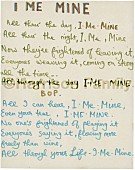 I ME MINE
All thru' the day I-Me-Mine
All thru' the night, I.Me.Mine
Now they're frightened of leaving it,
Everyone weaving it, coming on strong
all the time,
the day I-Me-Mine
BOP.
All I can hear, I.Me.Mine.
Even your tears, I.ME.MINE.
No one's frightened of playing it
Everyone saying it, flowing more
freely than wine,
All through your Life-I.Me-Mine.